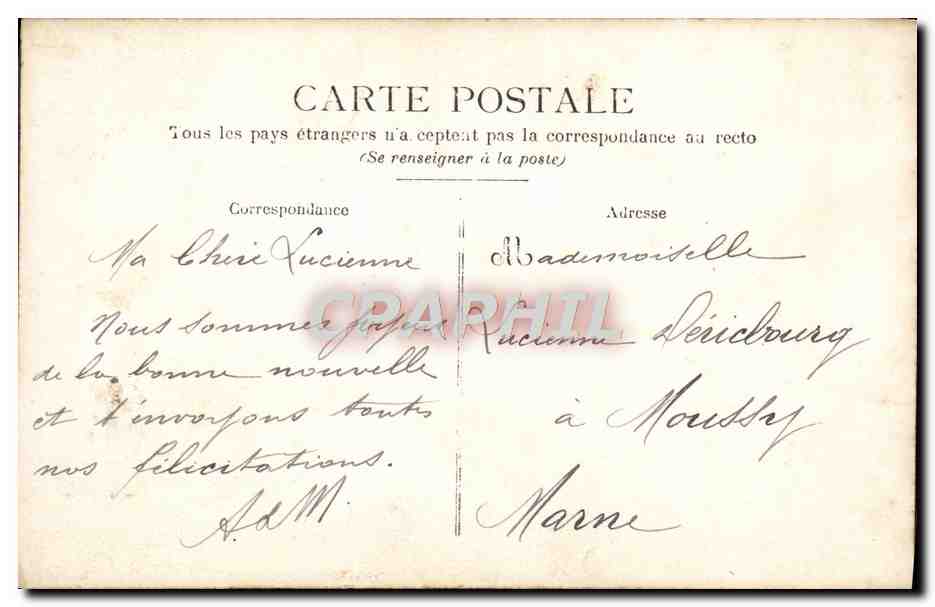 CARTE POSTALE
Tous les pays étrangers n'acceptent pas la correspondance au recto
(Se renseigner à la poste)
Correspondance
Ma Chère Lucienne
Nous sommes joyeux
de la bonne nouvelle
et t'envoyons toutes
nos félicitations.
A. d M.
Adresse
Mademoiselle
Lucienne Déricbourg
à Moussy
Marne
CPAPHIL